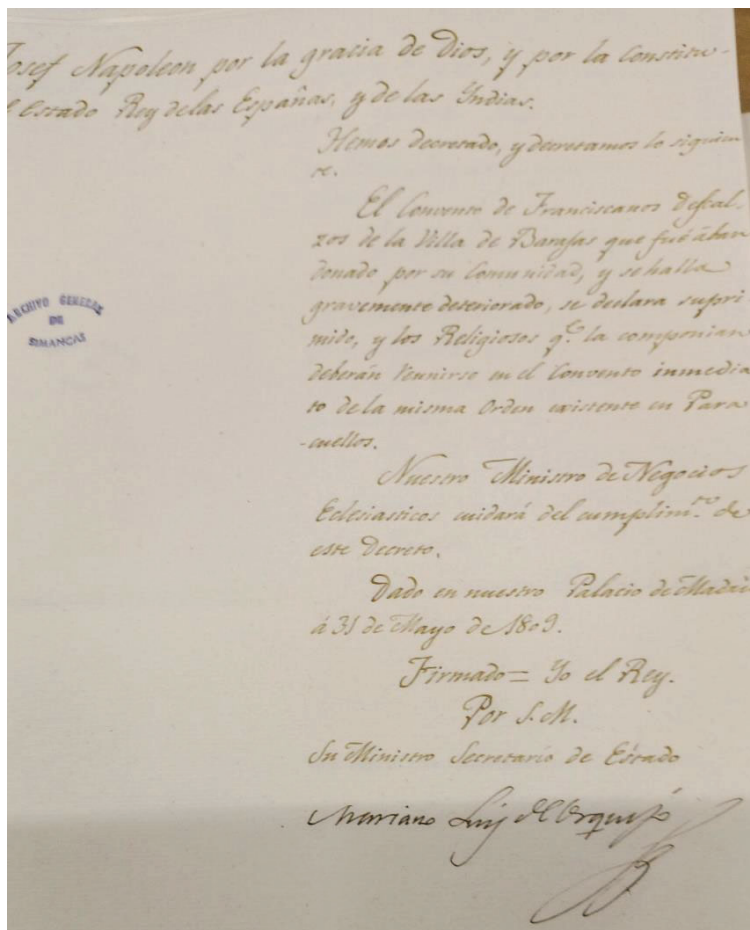 Josef Napoleon por la gracia de Dios, y por la Constitu-
l Estado Rey de las Españas, y de las Yndias.
Hemos decretado, y decretamos lo siguien
te.
El Convento de Franciscanos descal-
zos de la Villa de Barajas que fué aban
donado por su Comunidad, y se halla
gravemente deteriorado, se declara supri
mido, y los Religiosos q.e la componian
deberán reunirse en el Convento inmedia
to de la misma Orden existente en Para
-cuellos.
Nuestro Ministro de Negocios
Eclesiasticos cuidará del cumplim.to de
este decreto.
Dado en nuestro Palacio de Madri
á 31 de Mayo de 1809.
Firmado = Yo el Rey.
Por S. M.
Su Ministro Secretario de Estado
Mariano Luis de Urquijo
ARCHIVO GENERAL
DE
SIMANCAS